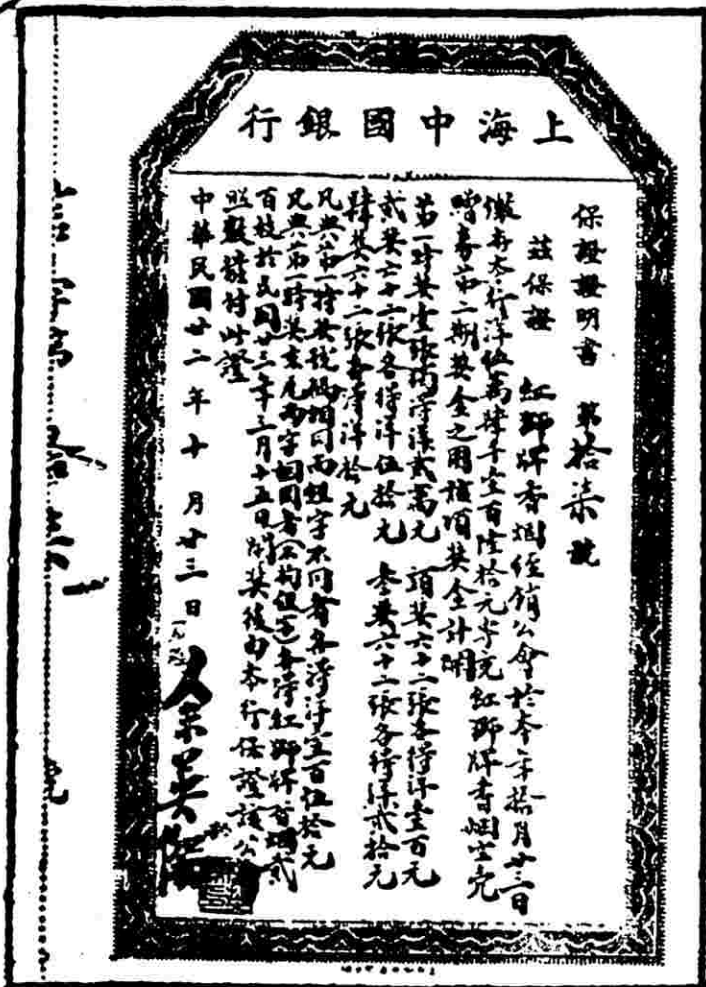 上海中國銀行
保證證明書 第拾柒號
茲保證 紅獅牌香烟經銷公會於本年拾月廿三日
繳存本行洋伍萬肆千壹百陸拾元専充紅獅牌香烟空壳
贈券第二期獎金之用該項獎金計開
第一特獎壹張獨得洋貳萬元 頭獎六十二張各得洋壹百元
貳獎六十二張各得洋伍拾元 叁獎六十二張各得洋貳拾元
肆獎六十二張各得洋拾元
凡與第一特獎號碼相同而組字不同者各得洋壹百伍拾元
凡與第一特獎末尾兩字相同者(不拘組字)各得紅獅牌香烟貳
百枝於民國廿三年三月十五日開獎後由本行保證該公會
照數發付此證
中華民國廿二年十月廿三日